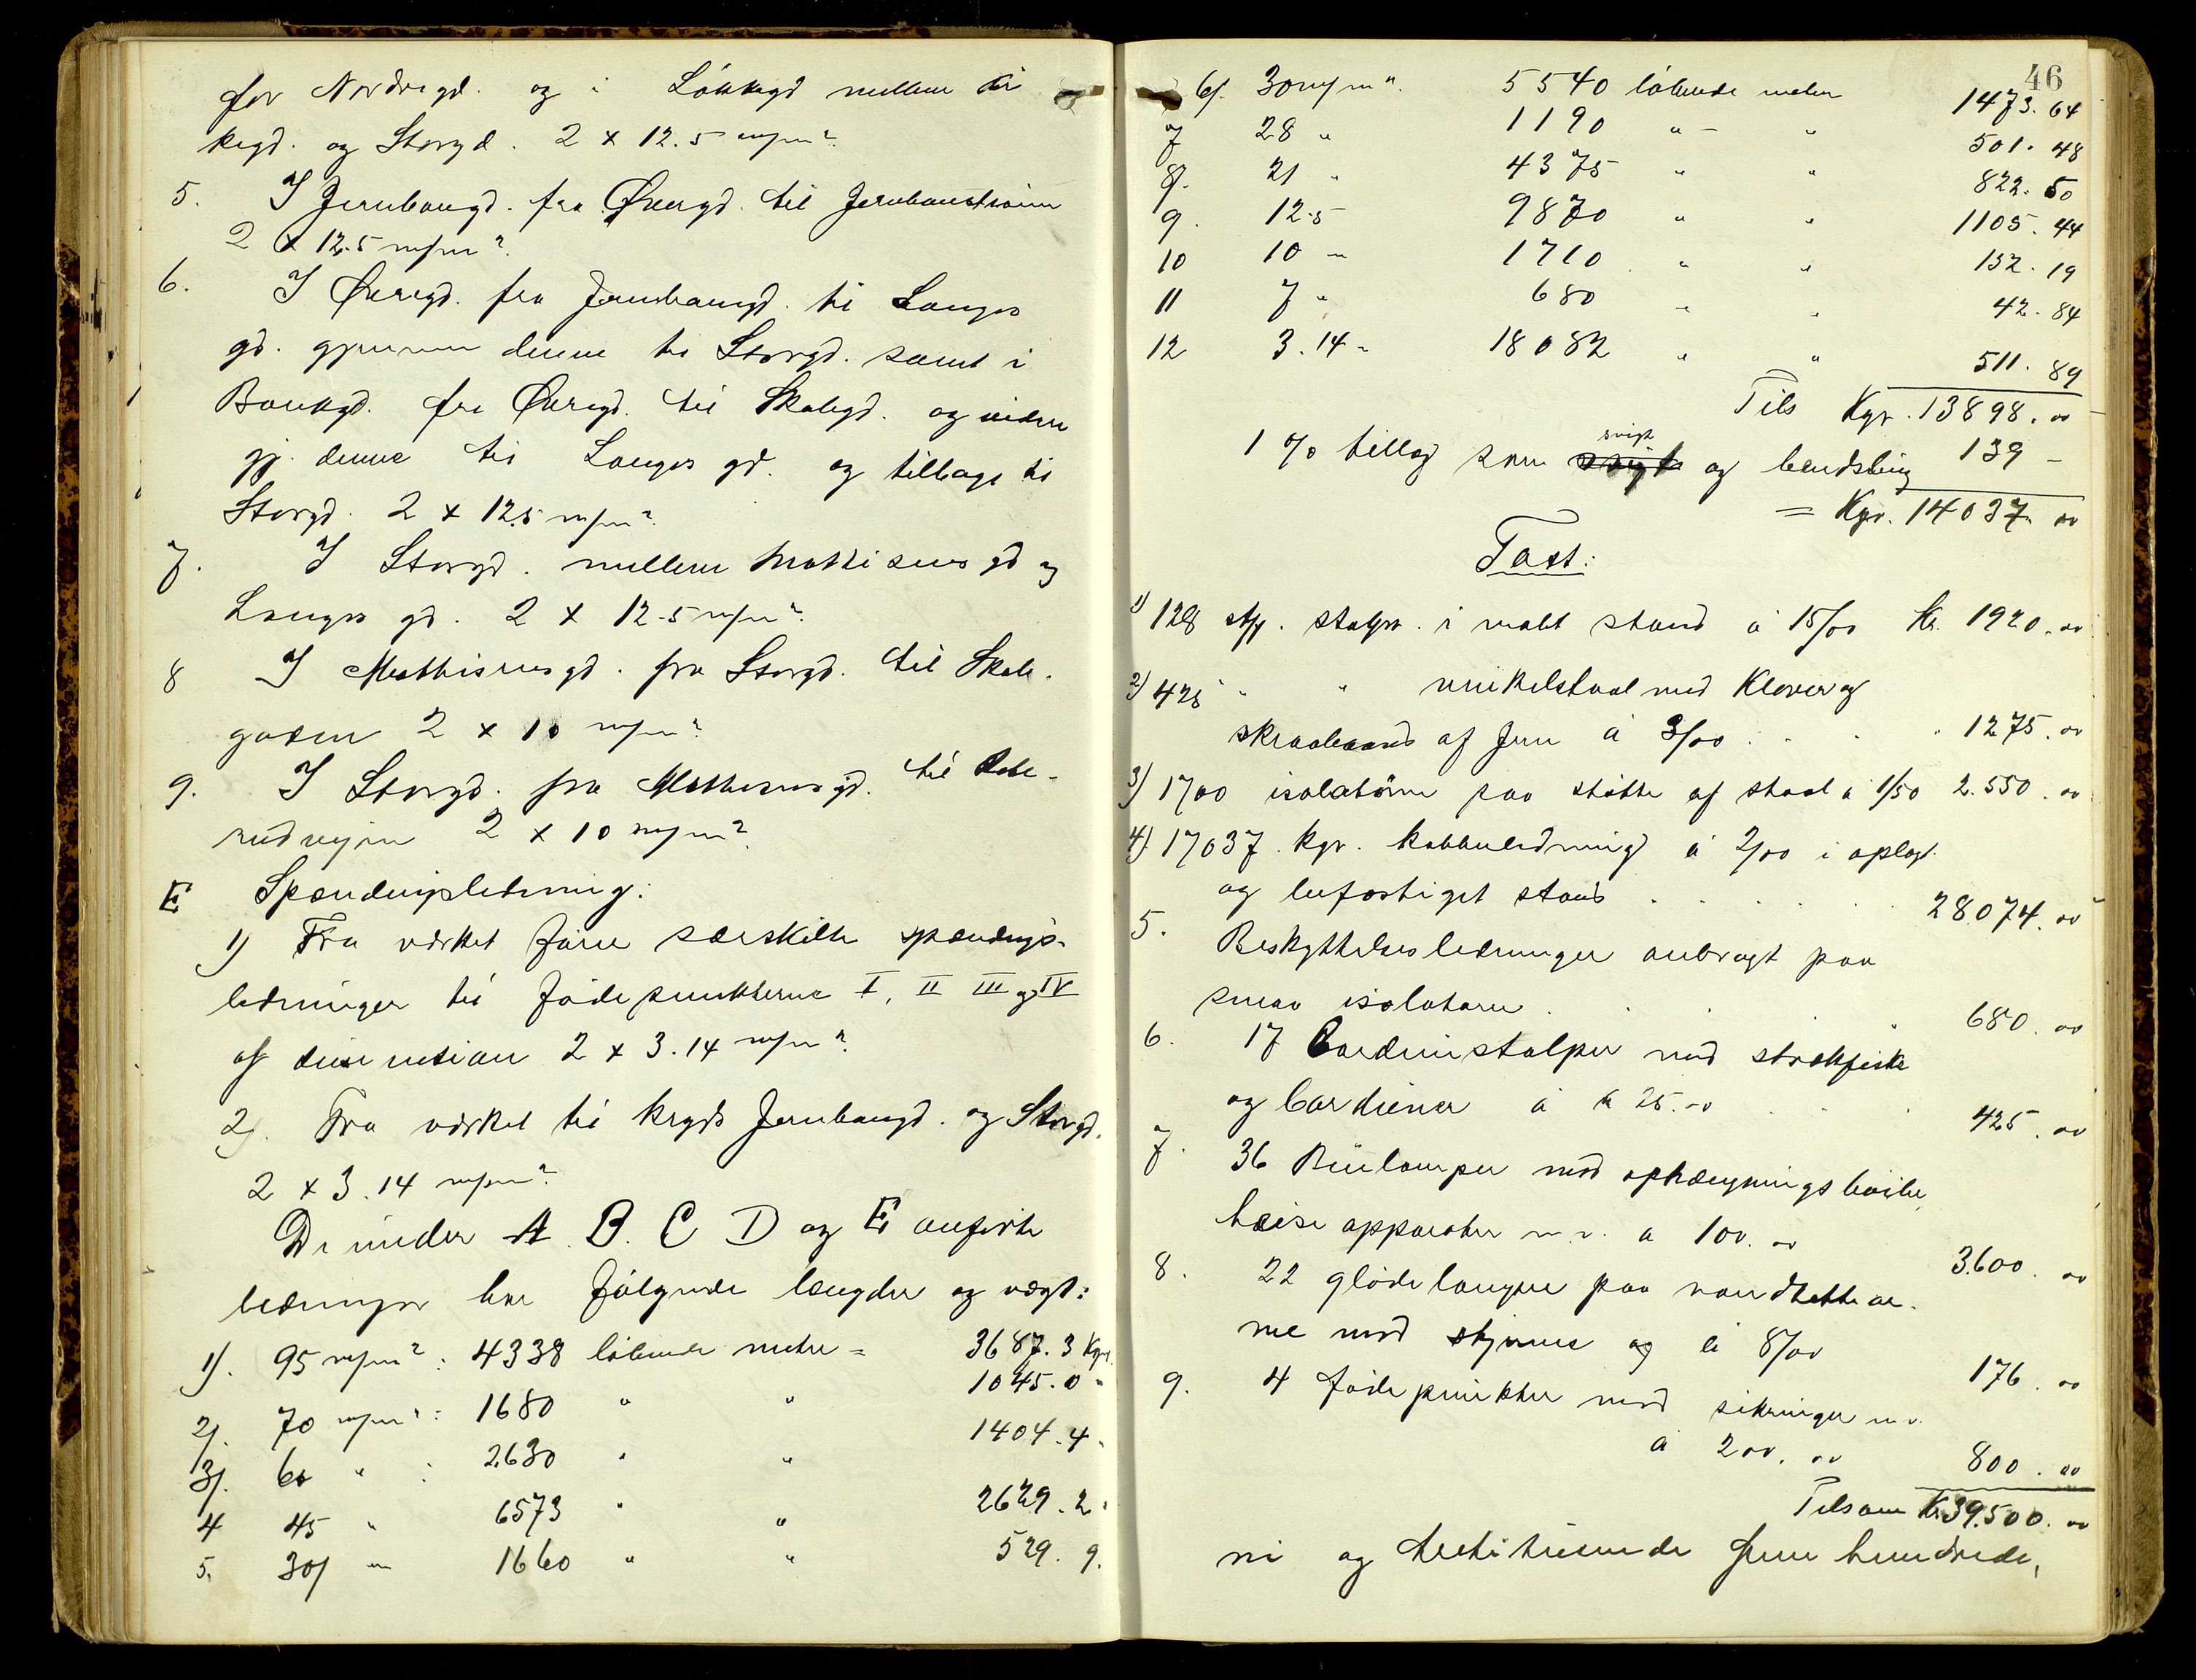 for Nordregd. og i Løkkegd mellem Kir
kegd. og Storgd. 2 x 12.5 m/m².
5. I Jernbanegd. fra Øvregd. til Jernbanetraine
2 x 12.5 m/m².
6. I Øvregd. fra Jernbanegd. til Langes
gd. gjennem denne til Storgd. samt i
Bankgd. fra Øvregd. til Skolegd. og videre
gj. denne til Langes gd. og tilbage til
Storgd. 2 x 12.5 m/m².
7. I Storgd. mellem Mathisens gd og
Langes gd. 2 x 12.5 m/m².
8 I Mathisensgd. fra Storgd. til Skole-
gaden 2 x 10 m/m².
9. I Storgd. fra Mathisensgd. til
rudvejen 2 x 10 m/m².
E Spændingsledning:
1) Fra værket fører særskilte spændings-
ledninger til fødepunkterne I, II III og IV
af dimension 2 x 3.14 m/m².
2). Fra værket til kryds Jernbanegd. og Storgd.
2 x 3.14 m/m².
De under A. B. C D og E anførte
ledninger har følgende længder og vægt:
1). 95 m/m² : 4338 løbende meter = 3687.3 Kgr.
2). 70 m/m² : 1680 " " 1045.0 "
3). 60 " : 2630 " " 1404.4 "
4 45 " 6573 " " 2629.2 "
5. 30 " 1660 " " 529.9.
46
6). 30 m/m ". 5540 løbende meter 1473.64
7 28 " 1190 " - " 501.48
8. 21 " 4375 " " 822.50
9. 12.5 9870 " " 1105.44
10 10 " 1710 " " 152.19
11 7 " 680 " " 42.84
12 3.14 " 18082 " " 511.89
Tils Kgr. 13898.00
svigt
1 % tillæg som svigt og bendsling 139 -
= Kgr. 14037.00
Tast:
1) 128 stk. stolper i malt stand á 15/00 Kr. 1920.00
2) 425 " " vinkelstaal med Klover og
skraabaand af Jern á 3/00 . . . 1275.00
3) 1700 isolatører paa støtte af staal á 1/50 2.550.00
4). 17037 kgr. kobberledning á 2/00 i oplagt
og befæstiget stand . . . . . 28.074.00
5. Beskyttelsesledninger anbragt paa
smaa isolatorer . . . . 680.00
6. 17 Cardinstolper med strækfiske
og Cardiener á kr 25.00 . . . 425.00
7. 36 Buelamper med ophængningsbøiler,
heise apparater m.v. a 100.00 3.600.00
8. 22 glødelamper paa vandtette ar-
me med skjerme og á 8/00 176.00
9. 4 fødepunkter med sikringer m.v.
á 200.00 800.00
Tilsam Kr. 39.500.00
ni og trettitusinde fem hundrede,